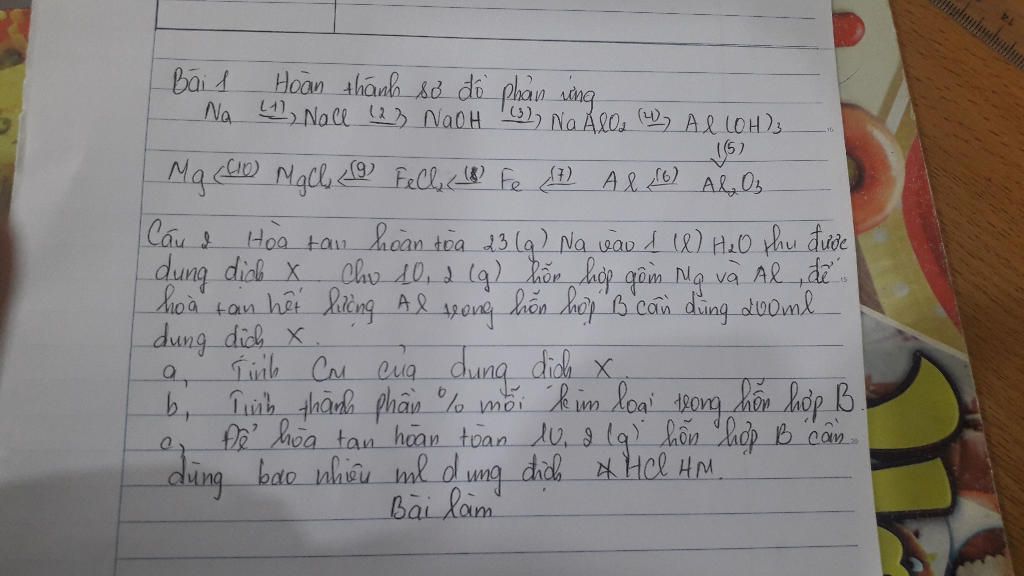 Bài 1 Hoàn thành sơ đồ phản ứng
Na (1)→ NaCl (2)→ NaOH (3)→ NaAlO2 (4)→ Al(OH)3
↓(5)
Mg ←(10) MgCl2 ←(9) FeCl2 ←(8) Fe ←(7) Al ←(6) Al2O3
Câu 2 Hòa tan hoàn tòa 23(g) Na vào 1 (l) H2O thu được
dung dịch X. Cho 10,2 (g) hỗn hợp gồm Mg và Al, để
hoà tan hết lượng Al trong hỗn hợp B cần dùng 200ml
dung dịch X.
a, Tính CM của dung dịch X.
b, Tính thành phần % mỗi kim loại trong hỗn hợp B.
c, Để hòa tan hoàn toàn 10,2 (g) hỗn hợp B cần
dùng bao nhiêu ml dung dịch HCl 4M.
Bài làm